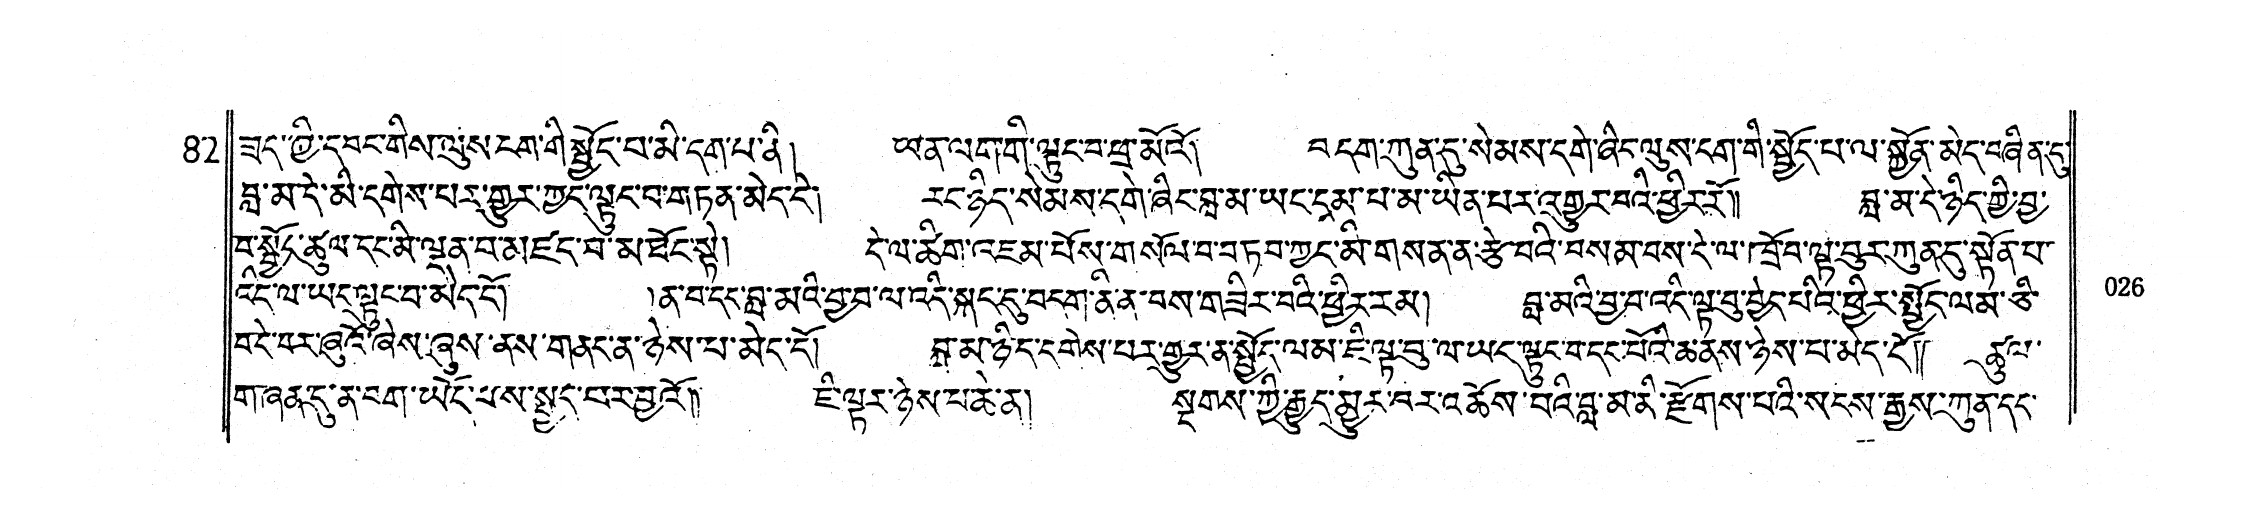 82 ཟད་ཀྱི་དབང་གིས་ལུས་ངག་གི་སྤྱོད་པ་མི་དག་པ་ནི། ཡན་ལག་གི་ལྟུང་བ་ཕྲ་མོའོ། བདག་ཀུན་ཏུ་སེམས་དགེ་ཞིང་ལུས་ངག་གི་སྤྱོད་པ་ལ་སྐྱོན་མེད་བཞིན་དུ་
བླ་མ་དེ་མི་དགེས་པར་གྱུར་ཀྱང་ལྟུང་བ་གཏན་མེད་དེ། རང་ཉིད་སེམས་དགེ་ཞིང་བླ་མ་ཡང་དམ་པ་མ་ཡིན་པར་འགྱུར་བའི་ཕྱིར་རོ།། བླ་མ་དེ་ཉིད་ཀྱི་བྱ་
བ་སྤྱོད་ཚུལ་དང་མི་ལྡན་པ་མཛད་པ་མ་ཐོང་སྟེ། དེ་ལ་ཚིག་འཇམ་པོས་གསོལ་བ་བཏབ་ཀྱང་མི་གསན་ན་རྩེ་བའི་བསམ་བས་དེ་ལ་ཁྲོབ་ལྟ་བུར་ཀུན་ཏུ་སྟོན་པ་
འདི་ལ་ཡང་ལྟུང་བ་མེད་དོ། ན་བ་དང་བླ་མའི་བྱ་བ་ལ་འདི་སྐད་དུ་བདག་ནི་ན་བས་གཟིར་བའི་ཕྱིར་རམ། བླ་མའི་བྱ་བ་འདི་ལྟ་བུ་བྱེད་པའི་ཕྱིར་སྤྱོད་ལམ་ཅི་
བདེ་བར་ཞུའོ་ཞེས་ཞུས་ནས་གནང་ན་ཉེས་པ་མེད་དོ། བླ་མ་ཉིད་དགེས་པར་གྱུར་ན་སྤྱོད་ལམ་ཇི་ལྟ་བུ་ལ་ཡང་ལྟུང་བ་དང་པོའི་ཆ་ནས་ཉེས་པ་མེད་དོ།། ཚུལ་
གཞན་དུ་ན་ངག་ཡིད་པས་སྤྱད་པར་བྱའོ།། ཇི་ལྟར་ཉེས་པ་ཆེ་ན། སྔགས་ཀྱི་རྒྱུད་མྱུར་བར་འཚོས་པའི་བླ་མ་ནི་རྫོགས་པའི་སངས་རྒྱས་ཀུན་དང་
026